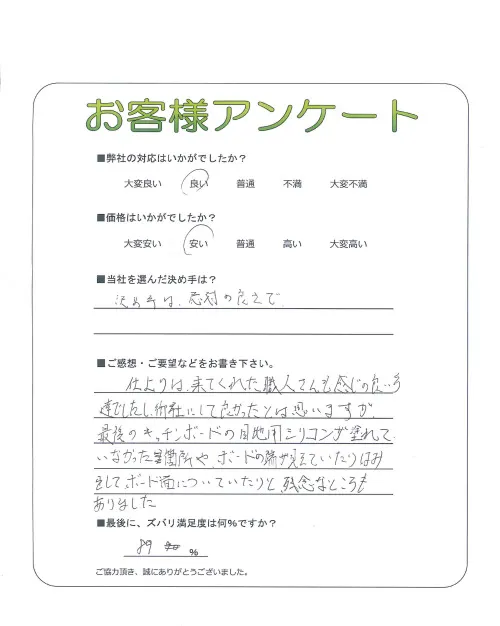 お客様アンケート
■弊社の対応はいかがでしたか？
大変良い 良い 普通 不満 大変不満
■価格はいかがでしたか？
大変安い 安い 普通 高い 大変高い
■当社を選んだ決め手は？
決め手は、応対の良さで
■ご感想・ご要望などをお書き下さい。
仕上りは、来てくれた職人さんも感じの良い方
達でしたし、御社にして良かったとは思いますが、
最後のキッチンボードの目地用シリコンが塗れて
いなかった箇所や、ボードの端が見えていたりはみ
出して、ボード面についていたりと残念なところも
ありました
■最後に、ズバリ満足度は何%ですか？
89 %
ご協力頂き、誠にありがとうございました。